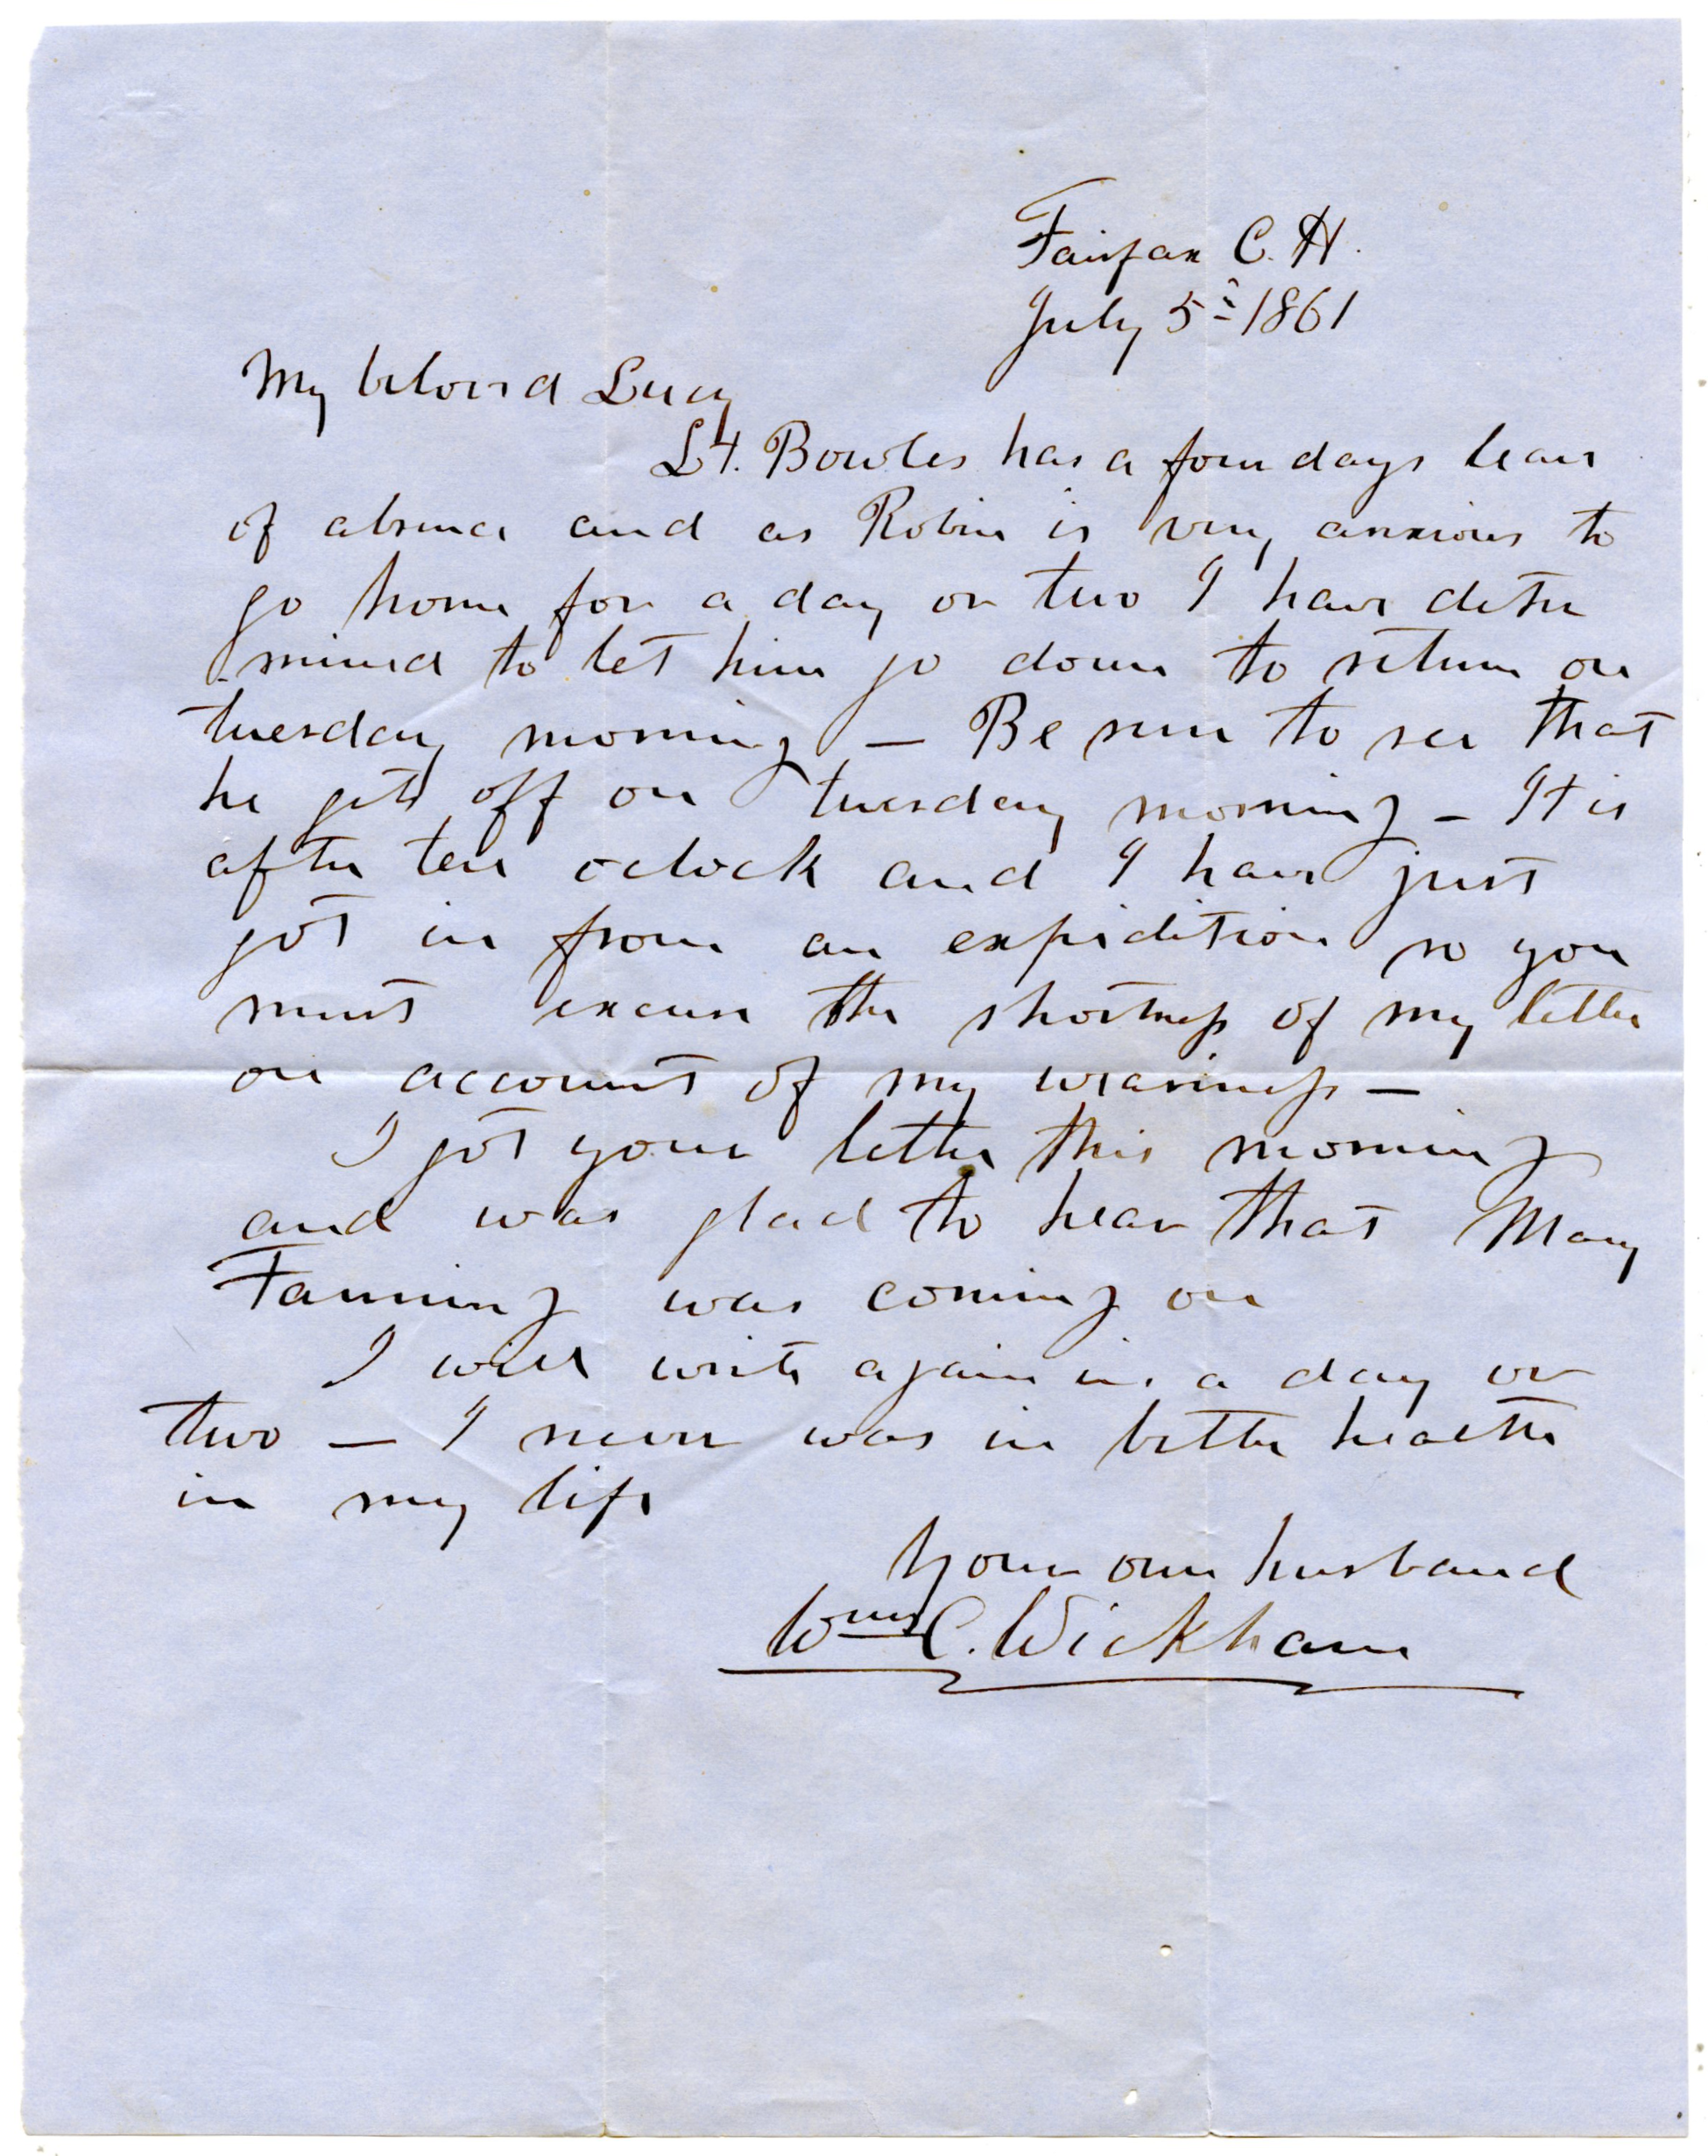 Fairfax C. H.
July 5th 1861
My beloved Lucy
Lt. Bowles has a four days leave
of absence and as Robin is very anxious to
go home for a day or two I have deter
mined to let him go down to return on
tuesday morning — Be sure to see that
he gets off on tuesday morning — It is
after ten oclock and I have just
got in from an expedition so you
must excuse the shortness of my letter
on account of my weariness —
I got your letter this morning
and was glad to hear that Mary
Fanning was coming on
I will write again in a day or
two — I never was in better health
in my life
Your own husband
Wms C. Wickham